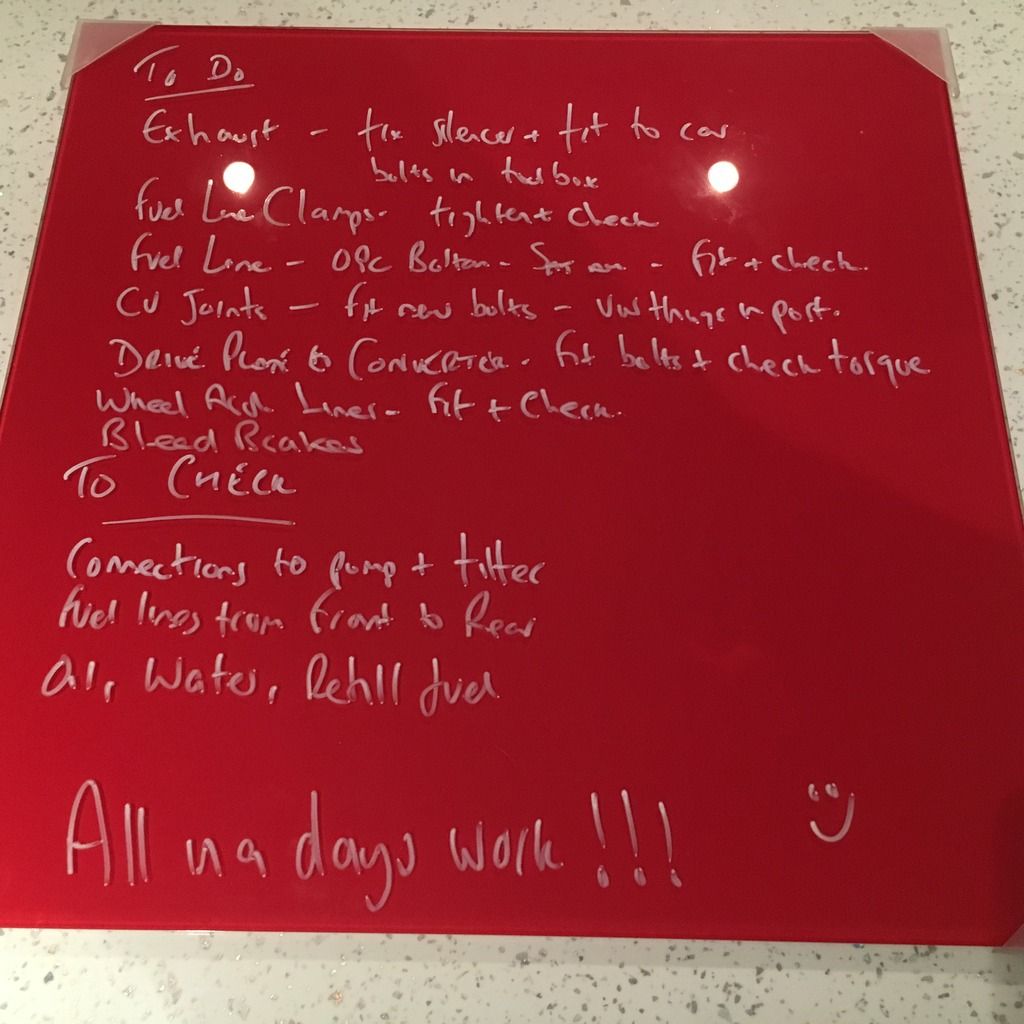 To Do
Exhaust - fix silencer + fit to car
bolts in toolbox
Fuel Line Clamps - tighten + check
Fuel Line - OPC Bolton - - fit + check.
CV Joints - fit new bolts - VW things in post.
DRIVE to CONVERTER - fit bolts + check torque
Wheel Arch Liner - fit + Check.
Bleed Brakes
To CHECK
Connections to pump + filter
Fuel lines from front to Rear
Oil, Water, Refill fuel
All in a days work!!!